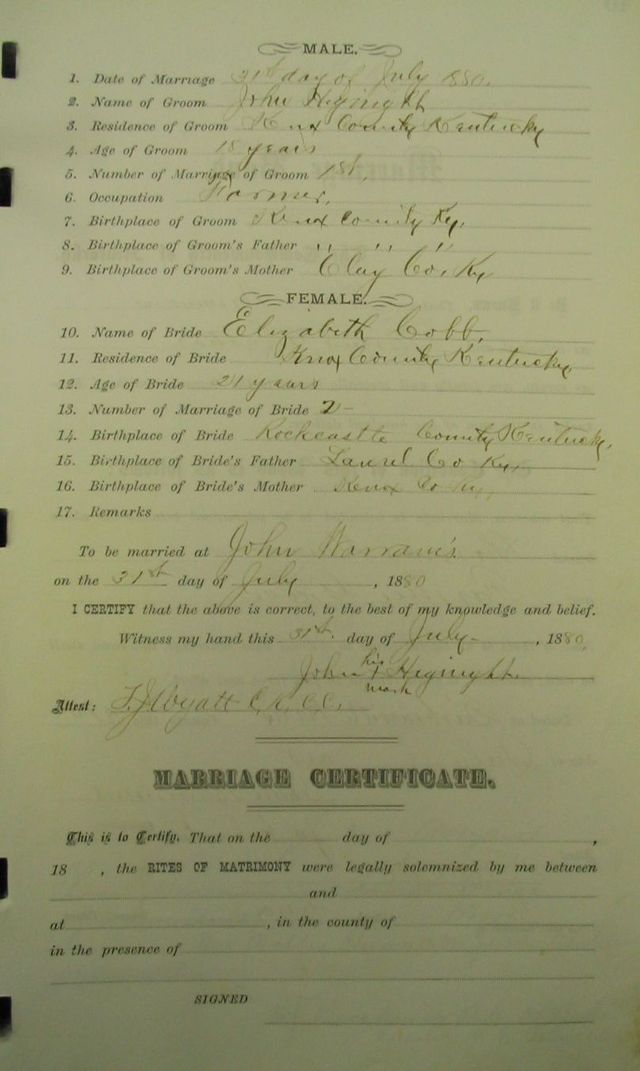 MALE.
1. Date of Marriage 31st day of July 1880.
2. Name of Groom John Heginight
3. Residence of Groom Knox County Kentucky
4. Age of Groom 18 years
5. Number of Marriage of Groom 1st,
6. Occupation Farmer,
7. Birthplace of Groom Knox County Ky,
8. Birthplace of Groom's Father " " "
9. Birthplace of Groom's Mother Clay Co. Ky
FEMALE.
10. Name of Bride Elizabeth Cobb,
11. Residence of Bride Knox County Kentucky,
12. Age of Bride 21 years
13. Number of Marriage of Bride 2-
14. Birthplace of Bride Rockcastle County Kentucky,
15. Birthplace of Bride's Father Laurel Co Ky,
16. Birthplace of Bride's Mother Knox Co Ky,
17. Remarks
To be married at John Warran's
on the 31st day of July , 1880
I CERTIFY that the above is correct, to the best of my knowledge and belief.
Witness my hand this 31st day of July , 1880.
John his x mark Heginight
Attest: F. J. Wyatt C. K. C. C.
MARRIAGE CERTIFICATE.
This is to Certify, That on the day of ,
18 , the RITES OF MATRIMONY were legally solemnized by me between
and
at , in the county of
in the presence of
SIGNED